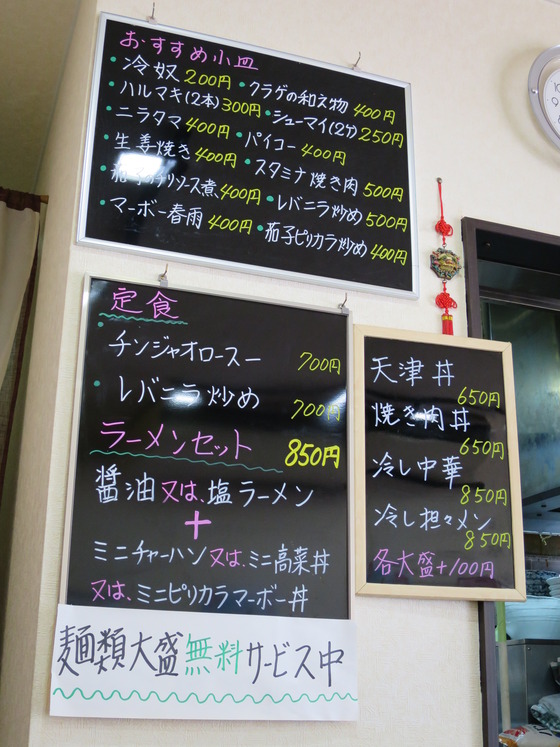 おすすめ小皿
・冷奴 200円 ・クラゲの和え物 400円
・ハルマキ(2本)300円 ・シューマイ(2ケ)250円
・ニラタマ 400円 ・パイコー 400円
・生姜焼き 400円 ・スタミナ焼き肉 500円
・茄子のチリソース煮 400円 ・レバニラ炒め 500円
・マーボー春雨 400円 ・茄子ピリカラ炒め 400円
定食
・チンジャオロースー 700円
・レバニラ炒め 700円
ラーメンセット 850円
醤油又は、塩ラーメン
+
ミニチャーハン又は、ミニ高菜丼
又は、ミニピリカラマーボー丼
麺類大盛無料サービス中
天津丼 650円
焼き肉丼 650円
冷し中華 850円
冷し担々メン 850円
各大盛+100円